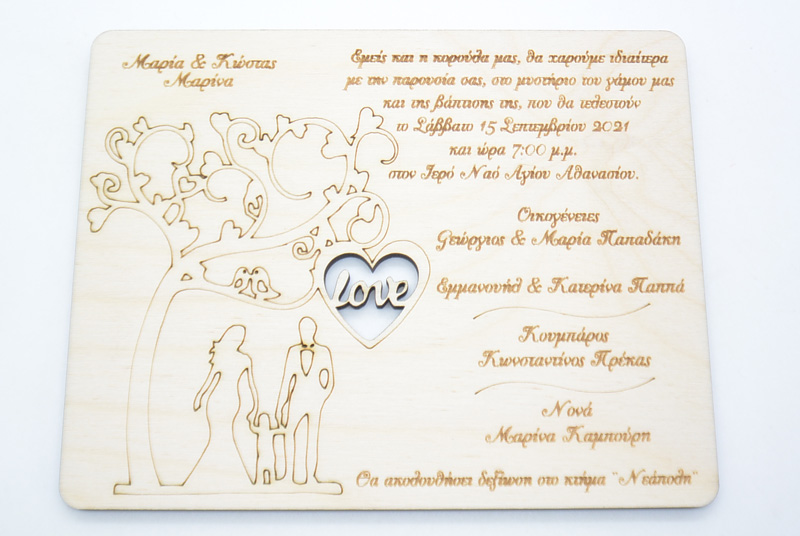 Μαρία & Κώστας
Μαρίνα
Εμείς και η κορούλα μας, θα χαρούμε ιδιαίτερα
με την παρουσία σας, στο μυστήριο του γάμου μας
και της βάπτισης της, που θα τελεστούν
το Σάββατο 15 Σεπτεμβρίου 2021
και ώρα 7:00 μ.μ.
στον Ιερό Ναό Αγίου Αθανασίου.
Οικογένειες
Γεώργιος & Μαρία Παπαδάκη
Εμμανουήλ & Κατερίνα Παππά
love
Κουμπάρος
Κωνσταντίνος Πρέκας
Νονά
Μαρίνα Καμπούρη
Θα ακολουθήσει δεξίωση στο κτήμα "Νεάπολη"